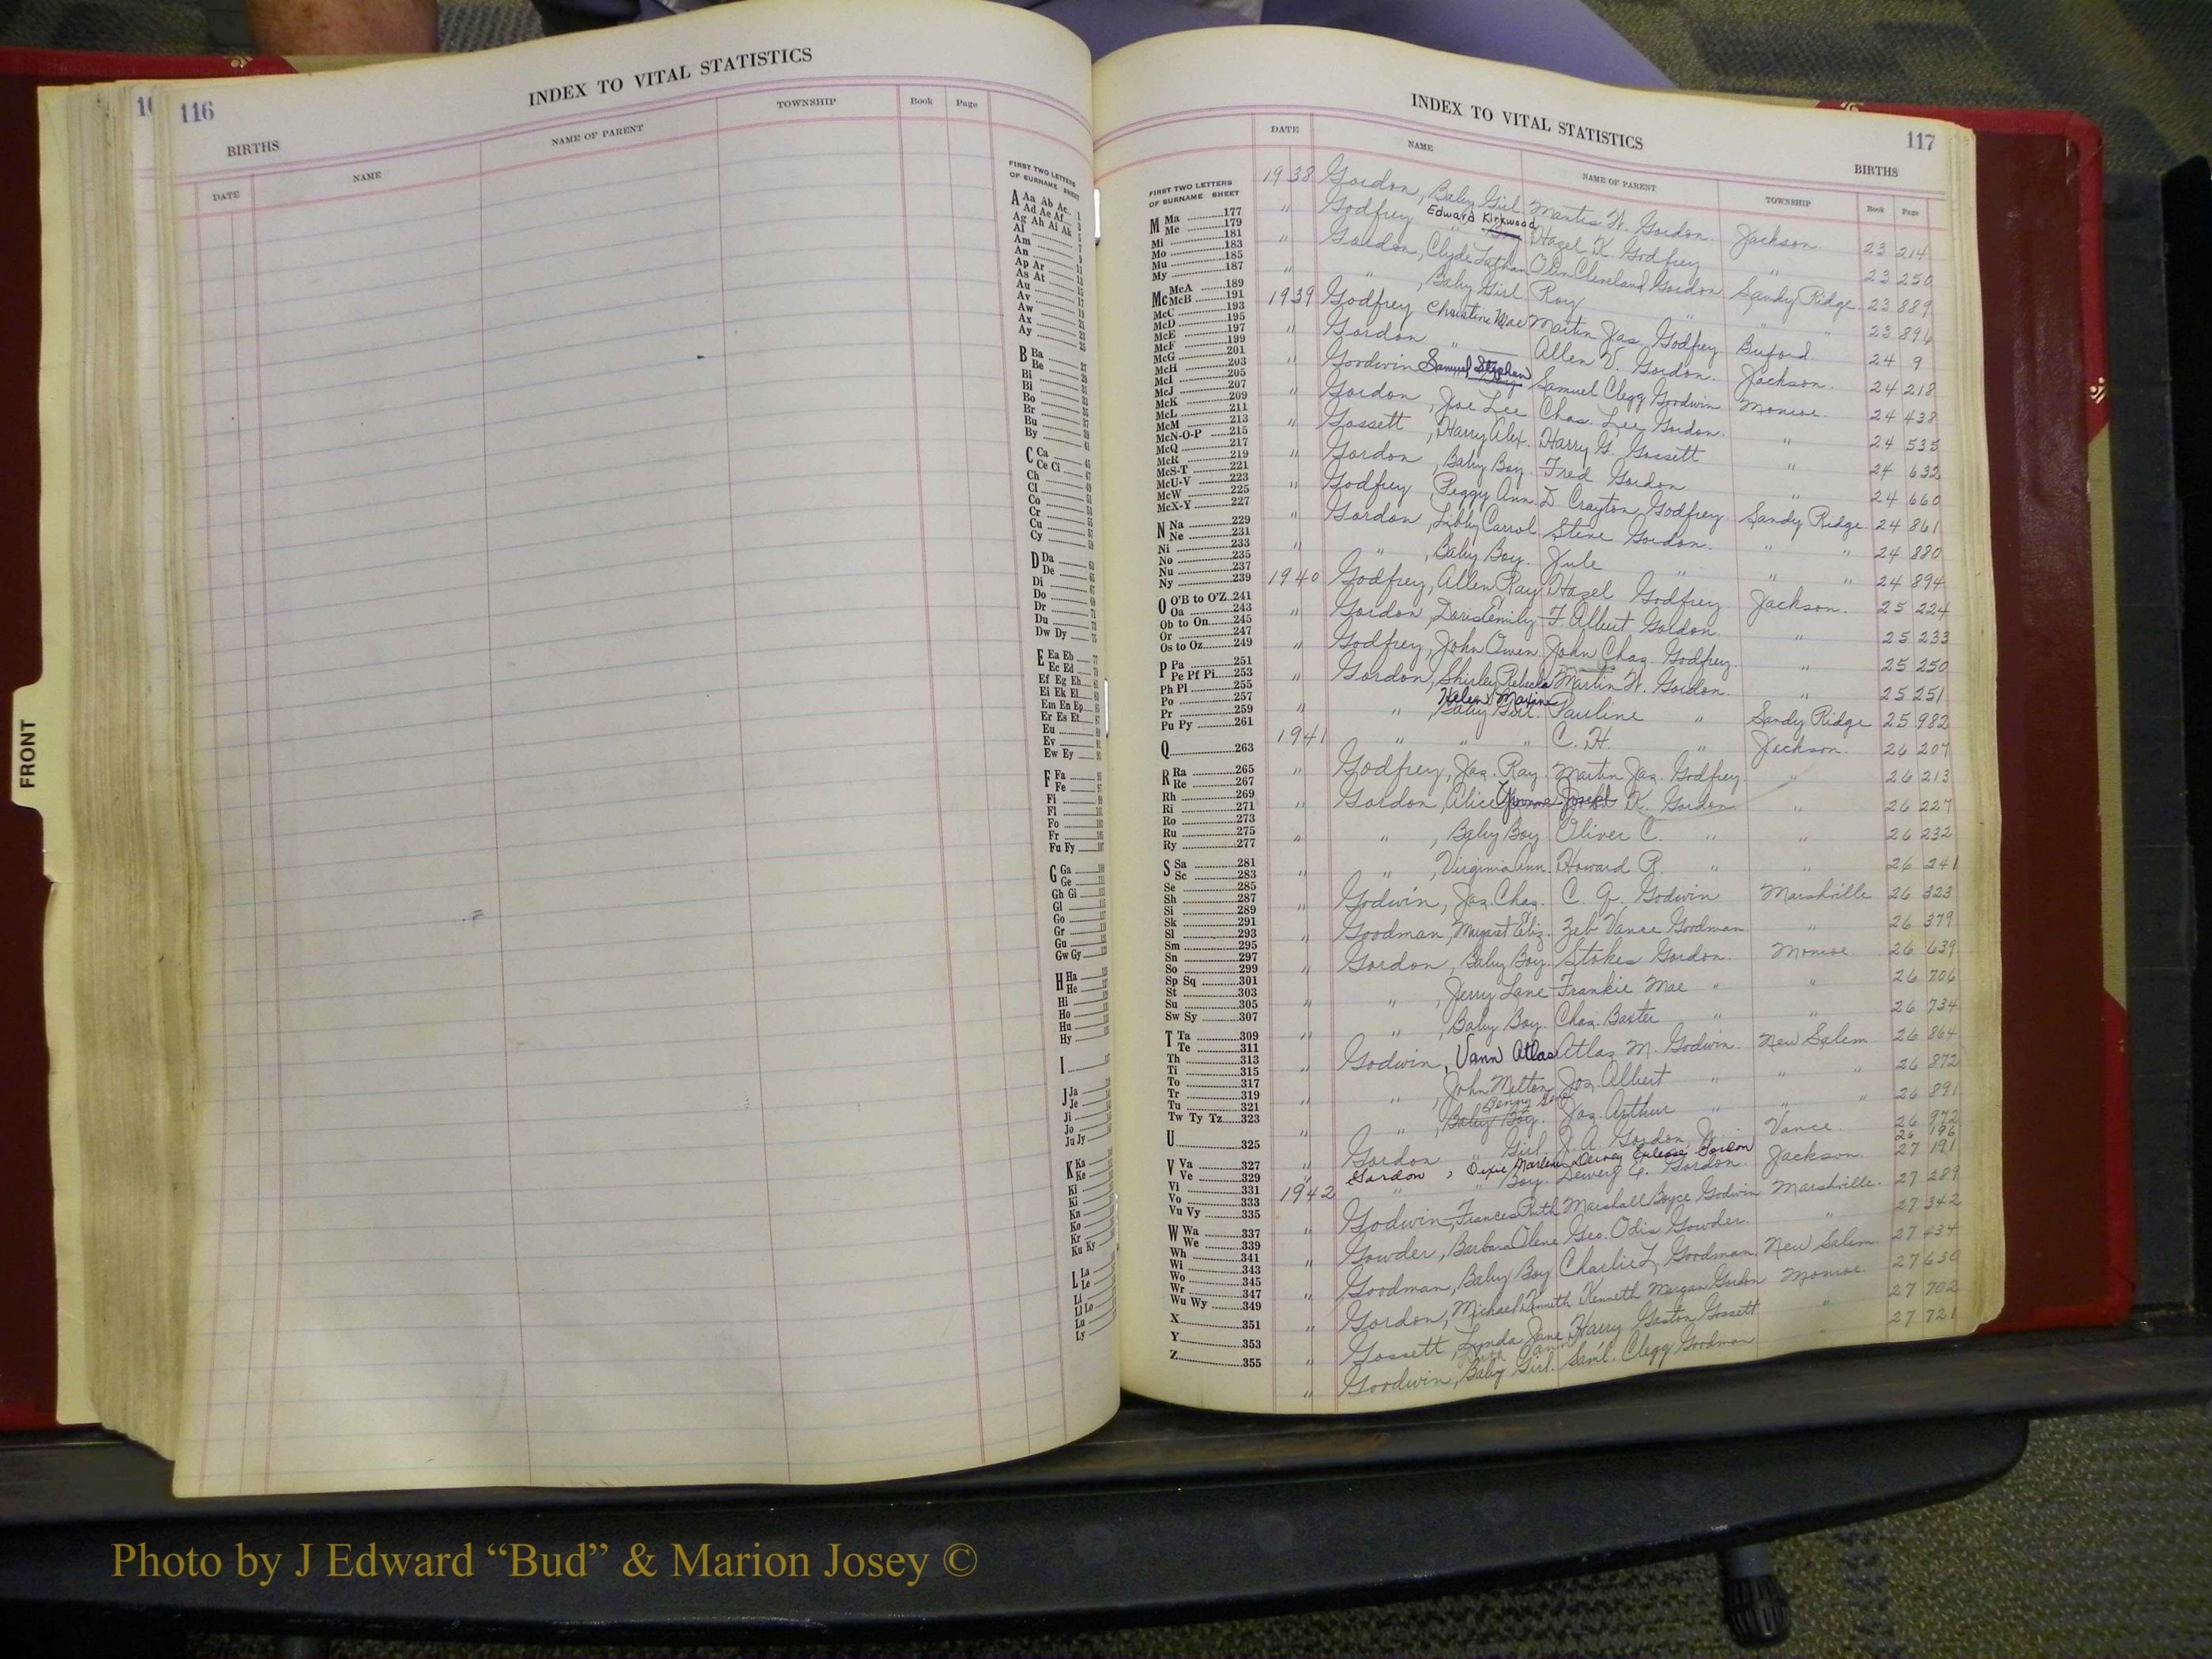 FRONT
10
116
INDEX TO VITAL STATISTICS
BIRTHS
DATE NAME NAME OF PARENT TOWNSHIP Book Page
FIRST TWO LETTERS
OF SURNAME SHEET
A Aa Ab Ac
Ad Ae Af
Ag Ah Ai Ak
Al
Am
An
Ap Ar
As At
Au
Av
Aw
Ax
Ay
B Ba
Be
Bi
Bl
Bo
Br
Bu
By
C Ca
Ce Ci
Ch
Cl
Co
Cr
Cu
Cy
D Da
De
Di
Do
Dr
Du
Dw Dy
E Ea Eb
Ec Ed
Ef Eg Eh
Ei Ek El
Em En Ep
Er Es Et
Eu
Ev
Ew Ey
F Fa
Fe
Fi
Fl
Fo
Fr
Fu Fy
G Ga
Ge
Gh Gi
Gl
Go
Gr
Gu
Gw Gy
H Ha
He
Hi
Ho
Hu
Hy
I
J Ja
Je
Ji
Jo
Ju Jy
K Ka
Ke
Ki
Kl
Kn
Ko
Kr
Ku Ky
L La
Le
Li
Ll Lo
Lu
Ly
INDEX TO VITAL STATISTICS
117
BIRTHS
DATE NAME NAME OF PARENT TOWNSHIP Book Page
FIRST TWO LETTERS
OF SURNAME SHEET
M Ma 177
Me 179
Mi 181
Mo 183
Mu 185
My 187
Mc McA 189
McB 191
McC 193
McD 195
McE 197
McF 199
McG 201
McH 203
McI 205
McJ 207
McK 209
McL 211
McM 213
McN-O-P 215
McQ 217
McR 219
McS-T 221
McU-V 223
McW 225
McX-Y 227
N Na 229
Ne 231
Ni 233
No 235
Nu 237
Ny 239
O O'B to O'Z 241
Oa 243
Ob to On 245
Or 247
Os to Oz 249
P Pa 251
Pe Pf Pi 253
Ph Pl 255
Po 257
Pr 259
Pu Py 261
Q 263
R Ra 265
Re 267
Rh 269
Ri 271
Ro 273
Ru 275
Ry 277
S Sa 281
Sc 283
Se 285
Sh 287
Si 289
Sk 291
Sl 293
Sm 295
Sn 297
So 299
Sp Sq 301
St 303
Su 305
Sw Sy 307
T Ta 309
Te 311
Th 313
Ti 315
To 317
Tr 319
Tu 321
Tw Ty Tz 323
U 325
V Va 327
Ve 329
Vi 331
Vo 333
Vu Vy 335
W Wa 337
We 339
Wh 341
Wi 343
Wo 345
Wr 347
Wu Wy 349
X 351
Y 353
Z 355
1938 Gordon, Baby Girl W. Gordon. Jackson. 23 214
" Godfrey Edward Kirkwood Hazel K. Godfrey " 23 250
" Gordon, Clyde Olin Cleveland Gordon Sandy Ridge 23 889
" " , Baby Girl Roy " " " 23 896
1939 Godfrey Christine Mae Martin Jas. Godfrey Buford 24 9
" Gordon " Allen V. Gordon. Jackson. 24 218
" Goodwin Samuel Stephen Samuel Clegg Goodwin Monroe. 24 438
" Gordon, Joe Lee Chas. Lee Gordon. " 24 535
" Gossett, Harry Alex. Harry G. Gossett " 24 632
" Gordon, Baby Boy. Fred Gordon " 24 660
" Godfrey, Peggy Ann. D. Crayton Godfrey Sandy Ridge 24 861
" Gordon, Libby Carrol Steve Gordon. " " 24 880
" " , Baby Boy. Jule " " " 24 894
1940 Godfrey, Allen Ray Hazel Godfrey. Jackson. 25 224
" Gordon, Doris Emily F. Albert Gordon. " 25 233
" Godfrey, John Owen. John Chas. Godfrey. " 25 250
" Gordon, Shirley Rebecca Martin W. Gordon. " 25 251
Helen Maxine
" " , Baby Girl. Pauline " Sandy Ridge 25 982
1941 " " " C. H. " Jackson. 26 207
" Godfrey, Jas. Ray. Martin Jas. Godfrey " 26 213
" Gordon, Alice Yvonne Joseph K. Gordon " 26 227
" " , Baby Boy. Oliver C. " " 26 232
" " , Virginia Ann. Howard R. " " 26 241
" Godwin, Jas. Chas. C. Godwin Marshville 26 323
" Goodman, Margaret Eliz. Zeb Vance Goodman " 26 379
" Gordon, Baby Boy. Stokes Gordon. Monroe 26 639
" " , Jerry Lane Frankie Mae " " 26 706
" " , Baby Boy. Chas. Baxter " " 26 734
" Godwin, Vann Atlas Atlas M. Godwin New Salem 26 864
" " , John Melton Jas. Albert " " " 26 872
" " , Baby Boy. Jas. Arthur " " " 26 891
" Gordon " Girl. J. A. Gordon, Jr. Vance. 26 972
Gordon, Dixie Marlene Gordon 26 196
1942 " " Boy. Gordon. Jackson. 27 191
" Godwin, Frances Ruth Marshall Boyce Godwin Marshville. 27 289
" Gowder, Barbara Olene Geo. Odis Gowder. " 27 342
" Goodman, Baby Boy Charlie L. Goodman New Salem 27 434
" Gordon, Michael Kenneth Kenneth Morgan Gordon Monroe. 27 630
" Gossett, Lynda Jane Harry Gaston Gossett " 27 702
" Goodwin, Baby Girl. Saml. Clegg Goodman " 27 721
Photo by J Edward “Bud” & Marion Josey ©